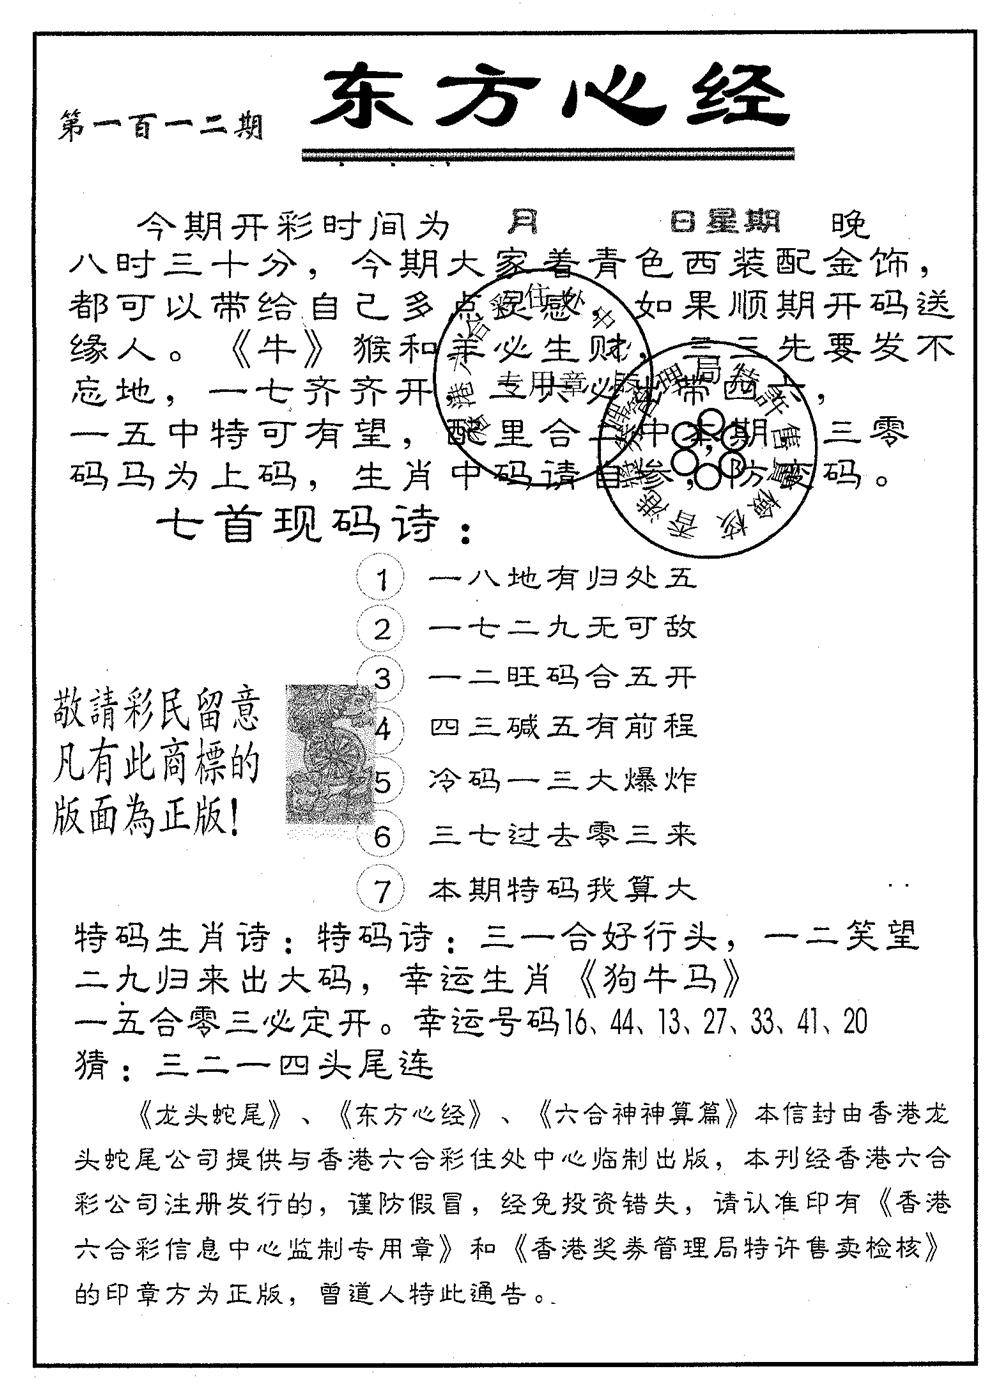 东方心经
第一百一二期
今期开彩时间为 月 日星期 晚
八时三十分，今期大家着青色西装配金饰，
都可以带给自己多点灵感，如果顺期开码送
缘人。《牛》猴和羊必生财，二三先要发不
忘地，一七齐齐开，二六必出带四六，
一五中特可有望，配里合一中本期，三零
码马为上码，生肖中码请自参，防冷码。
七首现码诗：
1 一八地有归处五
2 一七二九无可敌
3 一二旺码合五开
4 四三碱五有前程
5 冷码一三大爆炸
6 三七过去零三来
7 本期特码我算大
敬請彩民留意
凡有此商標的
版面為正版！
特码生肖诗：特码诗：三一合好行头，一二笑望
二九归来出大码，幸运生肖《狗牛马》
一五合零三必定开。幸运号码16、44、13、27、33、41、20
猜：三二一四头尾连
《龙头蛇尾》、《东方心经》、《六合神神算篇》本信封由香港龙
头蛇尾公司提供与香港六合彩住处中心临制出版，本刊经香港六合
彩公司注册发行的，谨防假冒，经免投资错失，请认准印有《香港
六合彩信息中心监制专用章》和《香港奖券管理局特许售卖检核》
的印章方为正版，曾道人特此通告。
专用章